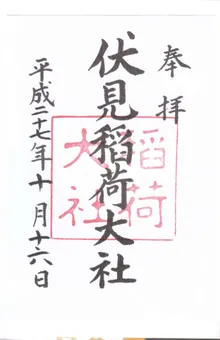 奉拝
伏見稲荷大社
稲荷
大社
平成二十七年十月十六日